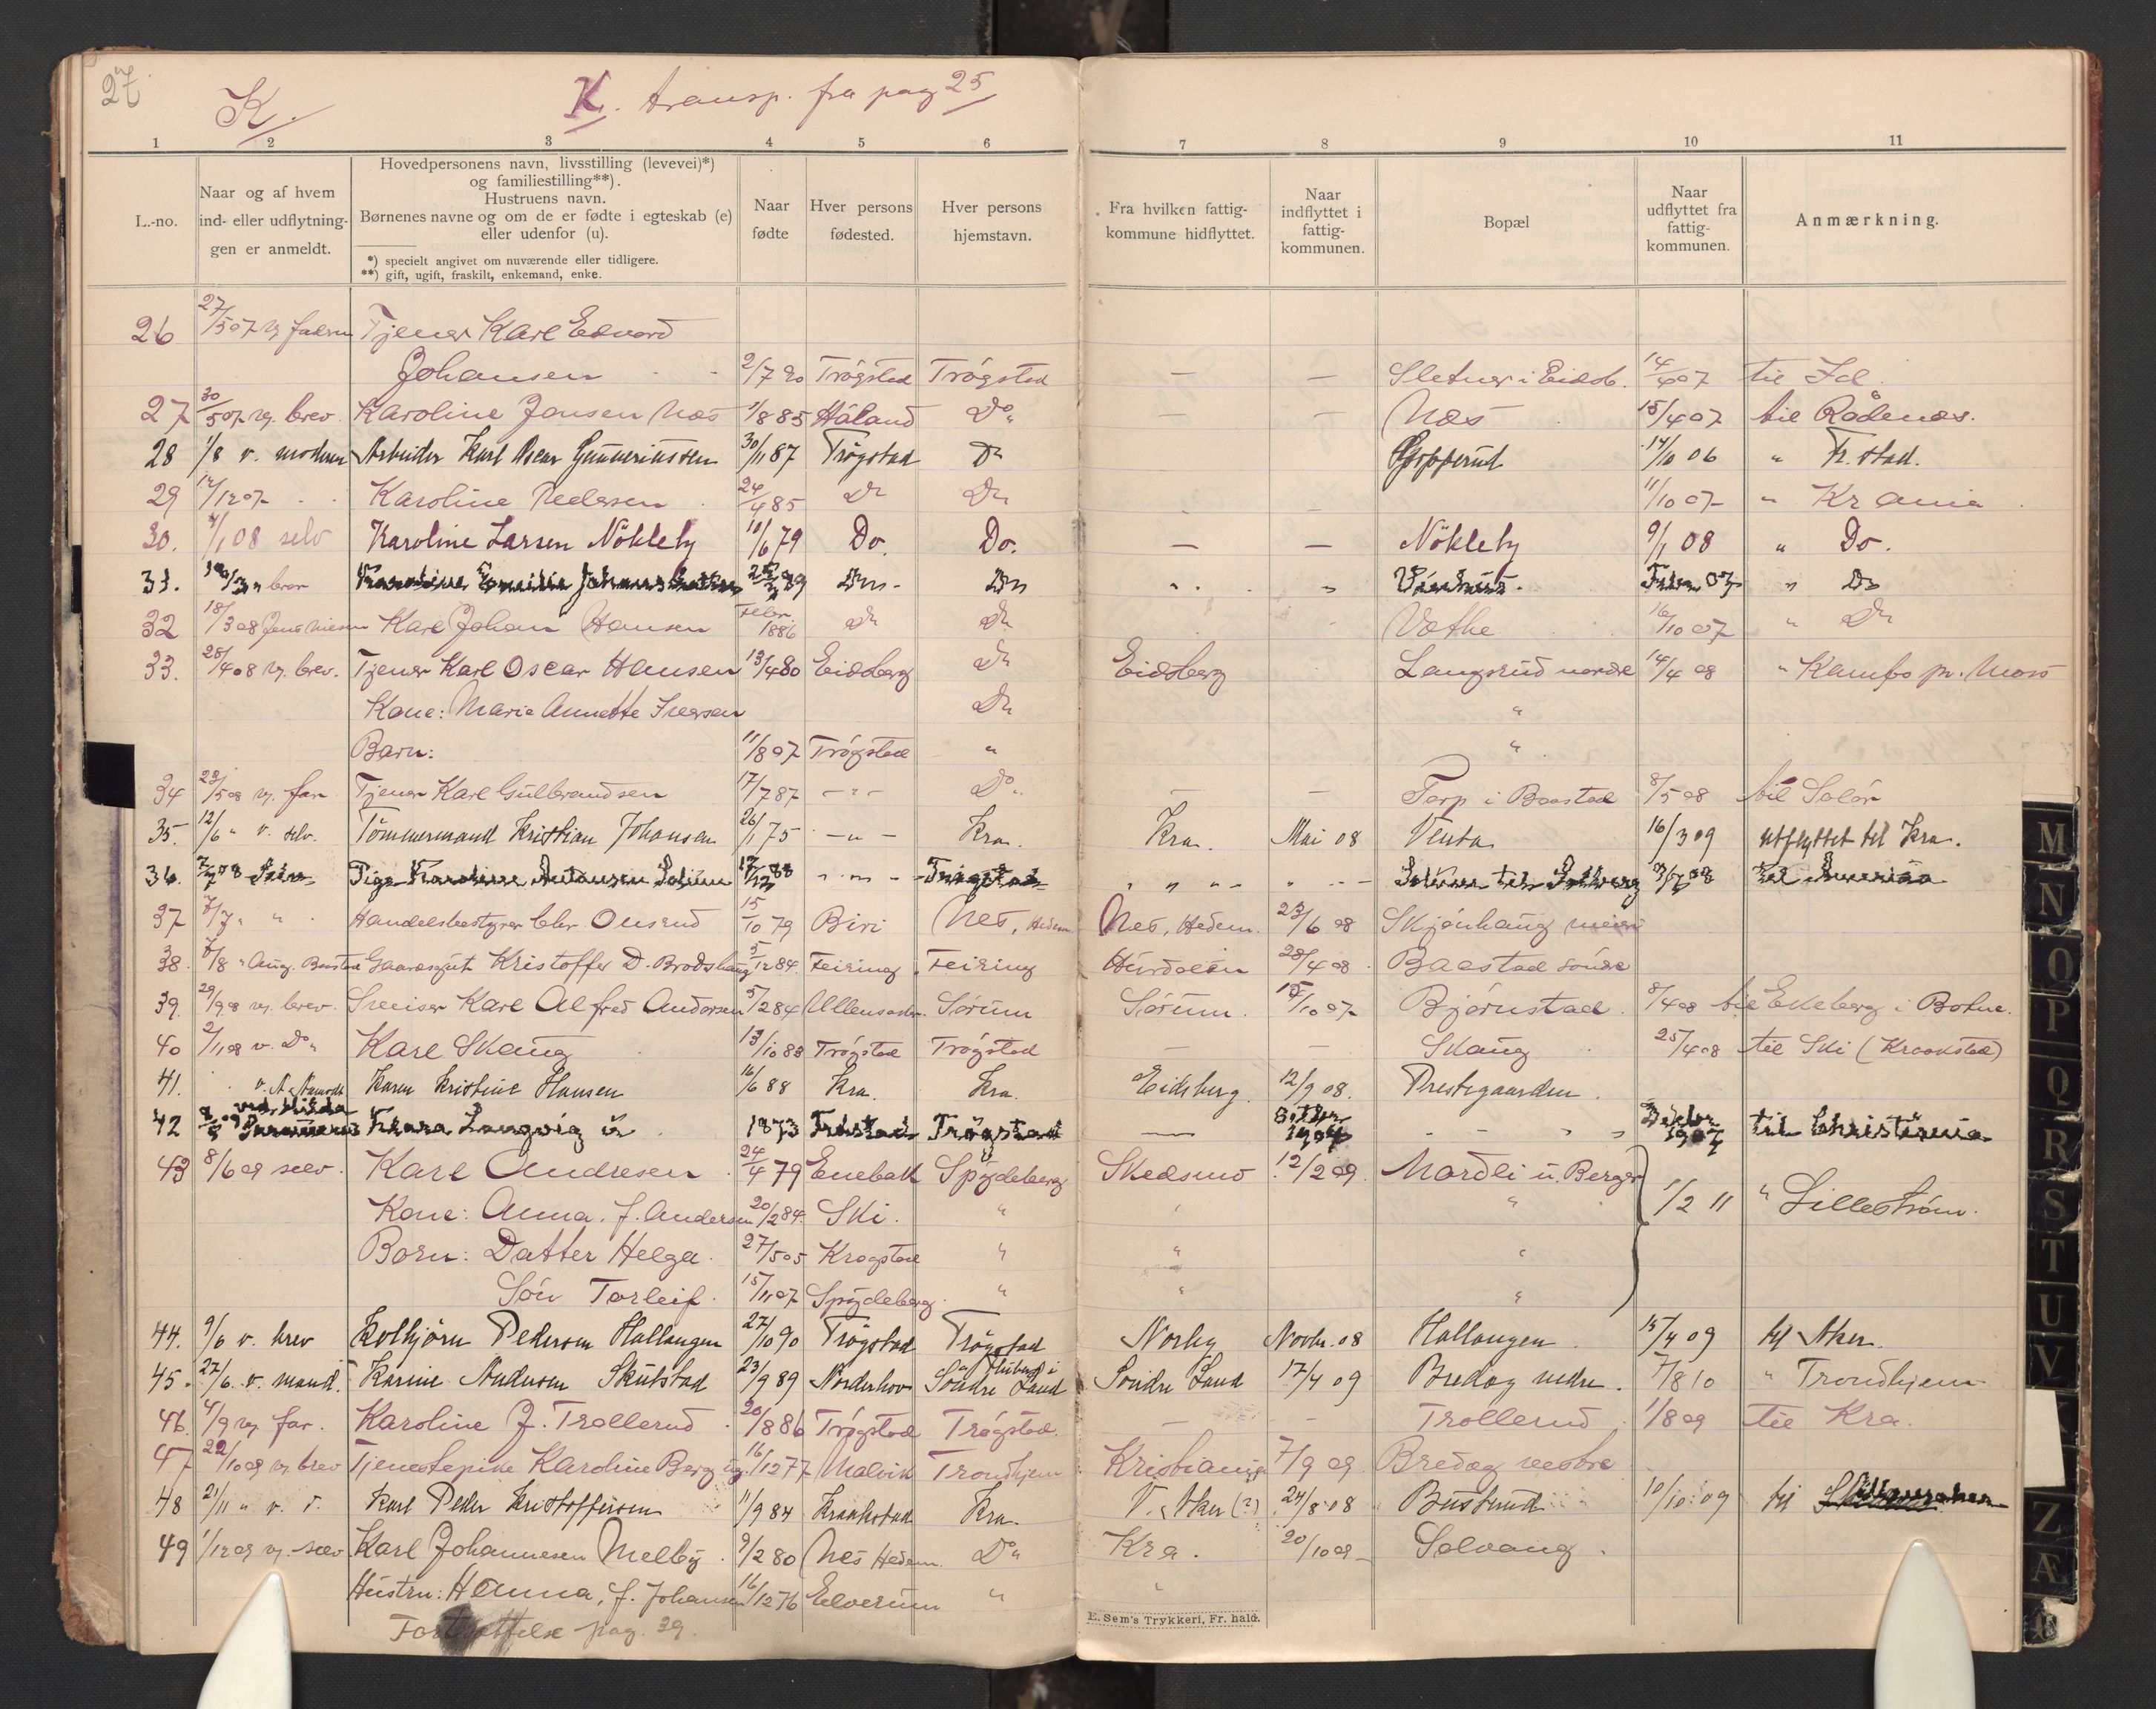 27
K.
K. transp. fra pag 25
1 2 3 4 5 6 7 8 9 10 11
L.-no.
Naar og af hvem
ind- eller udflytning-
gen er anmeldt.
Hovedpersonens navn, livsstilling (levevei)*)
og familiestilling**).
Hustruens navn.
Børnenes navne og om de er fødte i egteskab (e)
eller udenfor (u).
*) specielt angivet om nuværende eller tidligere.
**) gift, ugift, fraskilt, enkemand, enke.
Naar
fødte
Hver persons
fødested.
Hver persons
hjemstavn.
Fra hvilken fattig-
kommune hidflyttet.
Naar
indflyttet i
fattig-
kommunen.
Bopæl
Naar
udflyttet fra
fattig-
kommunen.
Anmærkning.
26 27/5 07 v. faderen Tjener Karl Edvard
Johansen 2/7 90 Trøgstad Trøgstad — — Sletner i Eidsb. 14/4 07 til Id.
27 30/5 07 v. brev. Karoline Jansen Næs 1/8 85 Høland Do — — Næs 15/4 07 til Rådenæs.
28 1/8 v. modren Arbeider Karl Oscar Gunneriussen 30/11 87 Trøgstad Do Gopperud 14/10 06 " Fr.stad.
29 12/12 07 Karoline Nielsen 24/4 85 Do Do 11/10 07 " Krania
30. 4/1 08 selv Karoline Larsen Nökleby 11/6 79 Do. Do. — — Nökleby 9/1 08 " Do.
31. /3 " brev Karoline Emilie 89 Do Do " " 07 " Do
32 18/3 08 Karl Johan Hansen Febr. 1886 Do Do Vathe 16/10 07 " Do
33. 28/4 08 v. brev. Tjener Karl Oscar Hansen 13/4 80 Eidsberg Do Eidsberg Langsrud nordre 14/4 08 " Kambo pr. Moss
Kone: Marie Annette Iversen Do "
Barn: 11/8 07 Trøgstad " "
34 23/5 08 v. far Tjener Karl Gulbrandsen 17/7 87 — " — Do — — Torp i Baastad 8/5 08 til Solør
35. 12/6 " v. selv. Tømmermand Kristian Johansen 26/1 75 — " — Kra. Kra. Mai 08 Venta 16/3 09 utflyttet til Kra.
36. 7/7 08 Selv Pige Karoline Antonsen 17/12 88 " " Trøgstad " " " " Solberg 3/7 08 til Amerika
37 7/7 " " Handelsbestyrer Chr. Onsrud 15/10 79 Biri Nes, Hedem. Nes, Hedem. 23/6 08 Skjønhaug meieri
38. 7/8 " Aug. Baastad Gaardsgut Kristoffer D. Brodshaug 5/12 84. Feiring Feiring Hurdalen 28/4 08 Baastad søndre
39. 29/9 08 v. brev. Sveiser Karl Alfred Andersen 5/2 84 Ullensaker. Sørum Sørum. 15/10 07 Bjørnstad 8/4 08 til Ekeberg i Botne.
40 2/11 08 v. Do Karl Skaug 13/10 88 Trøgstad Trøgstad — — Skaug 25/4 08 til Ski (Kraakstad)
41. Karen Kristine Hansen 16/6 88 Kra. Kra. Eidsberg. 12/9 08. Prestegaarden.
42 09 ved Hilda Klara Langvig u 1873 Trøgstad — Oktbr 1907 " " Dekbr 1907 til Christiania
43 8/6 09 selv. Karl Andresen 24/4 79 Enebakk Spydeberg Skedsmo 12/2 09. Mordli u. Berger 1/2 11 " Lillestrøm.
Kone: Anna. f. Andersen 20/2 84. Ski. " " "
Børn: Datter Helga. 27/5 05 Krogstad " " "
Søn Torleif. 15/11 07 Spydeberg. " " "
44. 9/6 v. brev Kolbjørn Pedersen Hallangen 27/10 90 Trøgstad Trøgstad Norby Novbr. 08 Hallangen 15/4 09 til Aker.
45. 27/6. v. mand. Karine Andersen Skulstad 23/9 89 Norderhov Søndre Land Søndre Land 17/4 09 Bredag nedre. 7/8 10 " Trondhjem
46. 4/9 v. far. Karoline J. Trollerud 20/8 86 Trøgstad Trøgstad. — — Trollerud 1/8 09 til Kra.
47 22/10 09 v. brev Tjenestepike Karoline Berg ug. 16/12 77 Malvik Trondhjem Kristiania 7/9 09 Bredag vestre
48 21/11 " v. d. Karl Peder Kristoffersen 11/9 84 Kraakstad Kra. V. Aker (?) 24/8 08 Busterud 10/10 09 til Ullensaker
49 1/12 09 v. selv Karl Johannesen Melby 9/2 80 Nes Hedem. Do Kra. 20/10 09 Solvang.
Hustru: Hanna, f. Johansen 16/12 76 Elverum " "
Fortsættelse pag. 39.
E. Sem's Trykkeri, Fr. hald.
M
N
O
P
Q
R
S
T
U
V
Z
Æ
Ø